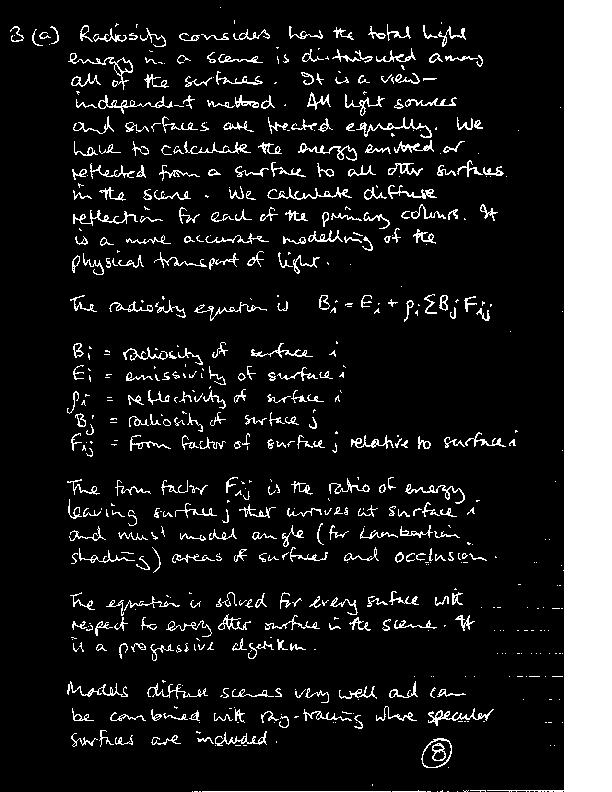 3 (a) Radiosity considers how the total light
energy in a scene is distributed among
all of the surfaces. It is a view-
independent method. All light sources
and surfaces are treated equally. We
have to calculate the energy emitted or
reflected from a surface to all other surfaces
in the scene. We calculate diffuse
reflection for each of the primary colours. It
is a more accurate modelling of the
physical transport of light.
The radiosity equation is Bi = Ei + ρi ΣBj Fij
Bi = radiosity of surface i
Ei = emissivity of surface i
ρi = reflectivity of surface i
Bj = radiosity of surface j
Fij = Form factor of surface j relative to surface i
The form factor Fij is the ratio of energy
leaving surface j that arrives at surface i
and must model angle (for Lambertian
shading) areas of surfaces and occlusion.
The equation is solved for every surface with
respect to every other surface in the scene. It
is a progressive algorithm.
Models diffuse scenes very well and can
be combined with ray-tracing where specular
surfaces are included.
8